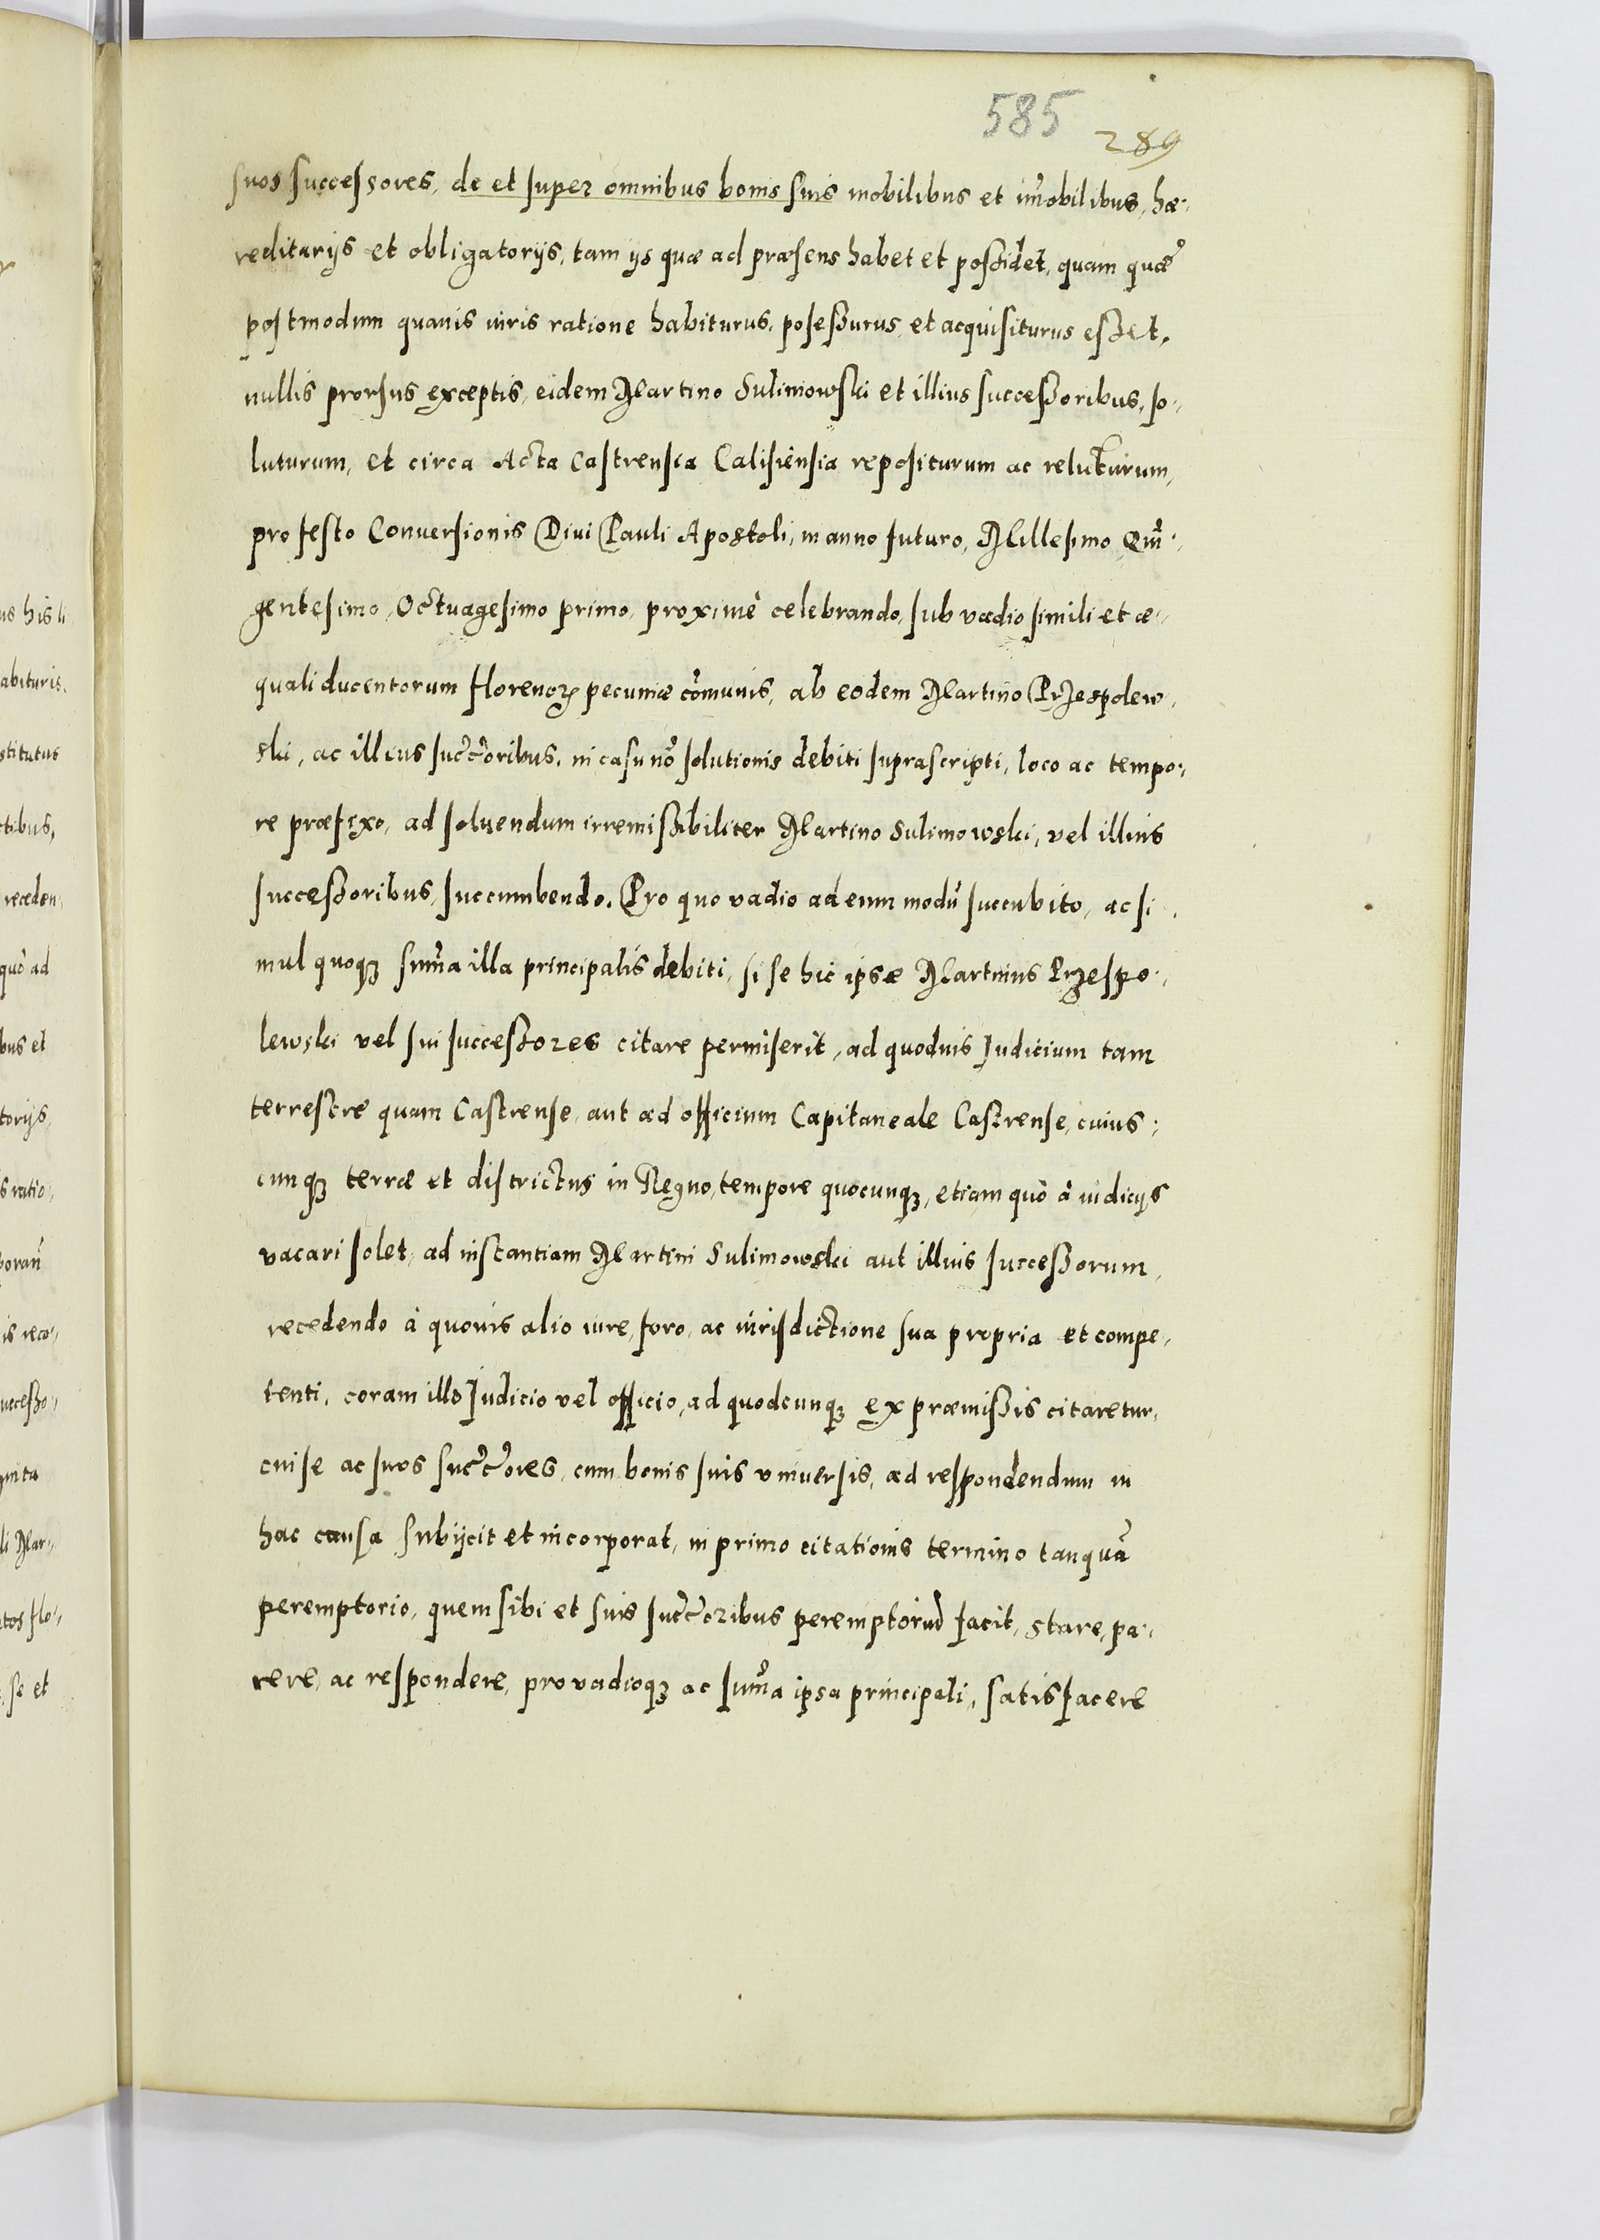 585
289
suos successores, de et super omnibus bonis suis mobilibus et im̃obilibus, hæ-
reditarijs et obligatorijs, tam ijs quæ ad præsens habet et possidet, quam quæ
postmodum quauis iuris ratione habiturus, possessurus et acquisiturus esset,
nullis prorsus exceptis, eidem Martino Sulimowski et illius successoribus, so-
luturum, et circa Acta Castrensia Calisiensia repositurum ac reluturum,
pro festo Conuersionis Diui Pauli Apostoli, in anno futuro, Millesimo Qui͂-
gentesimo, Octuagesimo primo, proximè celebrando, sub vadio simili et æ-
quali ducentorum florenoꝝ pecuniæ com̃unis, ab eodem Martino Przespolew-
ski, ac illius succ̃oribus, in casu nõ solutionis debiti suprascripti, loco ac tempo-
re præfixo, ad soluendum irremissibiliter Martino Sulimowski, vel illius
successoribus, succumbendo. Pro quo vadio ad eum modũ succubito, ac si-
mul quoqꝫ sum̃a illa principalis debiti, si se hic ipse Martinus Przespo-
lewski vel sui successores citare permiserit, ad quoduis Judicium tam
terrestre quam Castrense, aut ad officium Capitaneale Castrense, cuius-
cunqꝫ terræ et districtus in Regno, tempore quocunqꝫ, etiam quo à iudicijs
vacari solet, ad instantiam Martini Sulimowski aut illius successorum,
recedendo à quouis alio iure, foro, ac iurisdictione sua propria et compe-
tenti, coram illo Judicio vel officio, ad quodcunqꝫ ex præmissis citaretur,
cui se ac suos succ̃ores, cum bonis suis vniuersis, ad respondendum in
hac causa subijcit et incorporat, in primo citationis termino tanquã
peremptorio, quem sibi et suis succ̃oribus peremptoriũ facit, stare, pa-
rere, ac respondere, pro vadioqꝫ ac sum̃a ipsa principali, satisfacere